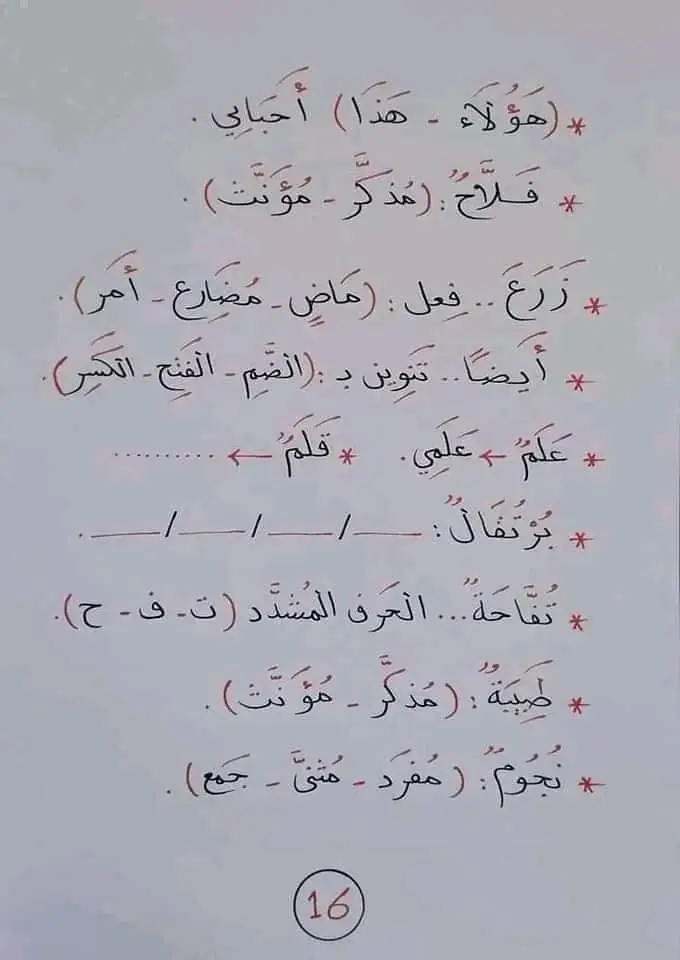 * (هَؤُلَاءِ - هَذَا) أَحبَابِي .
* فَلَّاحٌ : (مُذكَّر - مُؤَنَّث) .
* زَرَعَ .. فِعل : (مَاضٍ - مُضَارِع - أَمر) .
* أَيضًا .. تَنوِين بـ : (الضَّمِ - الفَتحِ - الكَسرِ) .
* عَلَمٌ ← عَلَمِي . * قَلَمٌ ← ..........
* بُرتُقَالٌ : ــــ / ــــ / ــــ / ــــ .
* تُفَّاحَةٌ ... الحَرف المُشدَّد (ت - ف - ح) .
* طَبِيبَةٌ : (مُذكَّر - مُؤَنَّث) .
* نُجُومٌ : (مُفرَد - مُثنَّى - جَمع) .
16